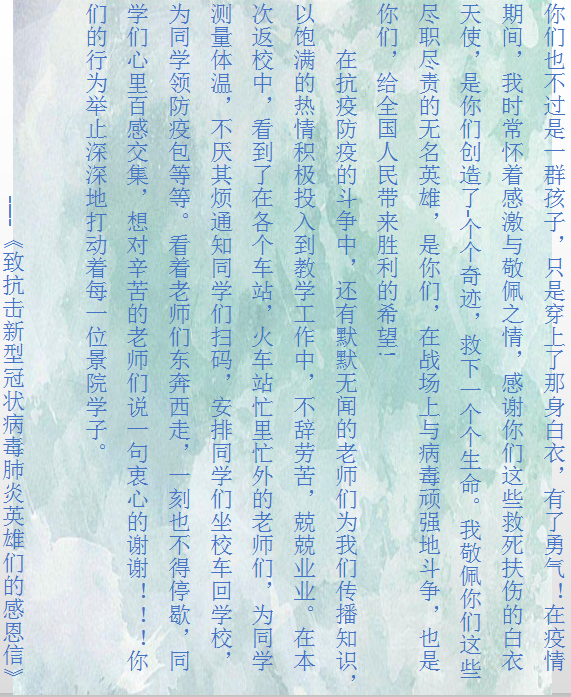 你们也不过是一群孩子，只是穿上了那身白衣，有了勇气！在疫情
期间，我时常怀着感激与敬佩之情，感谢你们这些救死扶伤的白衣
天使，是你们创造了一个个奇迹，救下一个个生命。我敬佩你们这些
尽职尽责的无名英雄，是你们，在战场上与病毒顽强地斗争，也是
你们，给全国人民带来胜利的希望！
在抗疫防疫的斗争中，还有默默无闻的老师们为我们传播知识，
以饱满的热情积极投入到教学工作中，不辞劳苦，兢兢业业。在本
次返校中，看到了在各个车站，火车站忙里忙外的老师们，为同学
测量体温，不厌其烦通知同学们扫码，安排同学们坐校车回学校，
为同学领防疫包等等。看着老师们东奔西走，一刻也不得停歇，同
学们心里百感交集，想对辛苦的老师们说一句衷心的谢谢！！！你
们的行为举止深深地打动着每一位景院学子。
——《致抗击新型冠状病毒肺炎英雄们的感恩信》